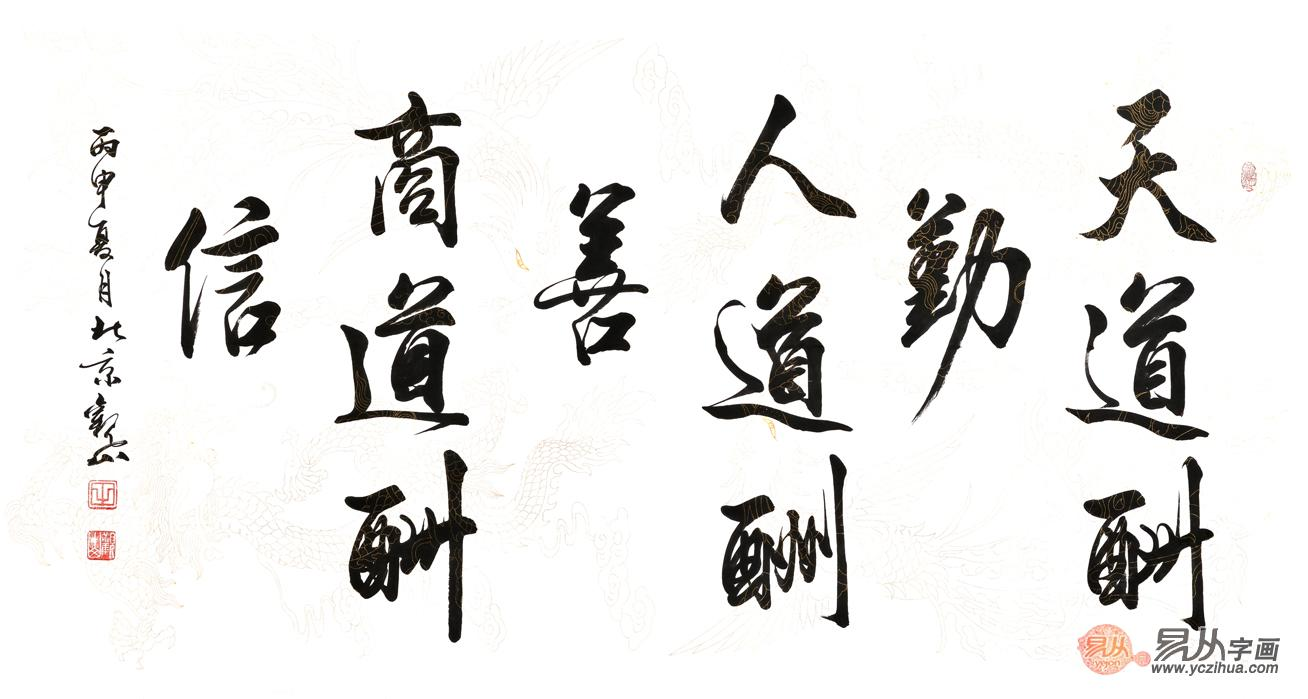 天道酬
勤
人道酬
善
商道酬
信
丙申夏月北京觀山
易从字画
yicjen
www.yczihua.com